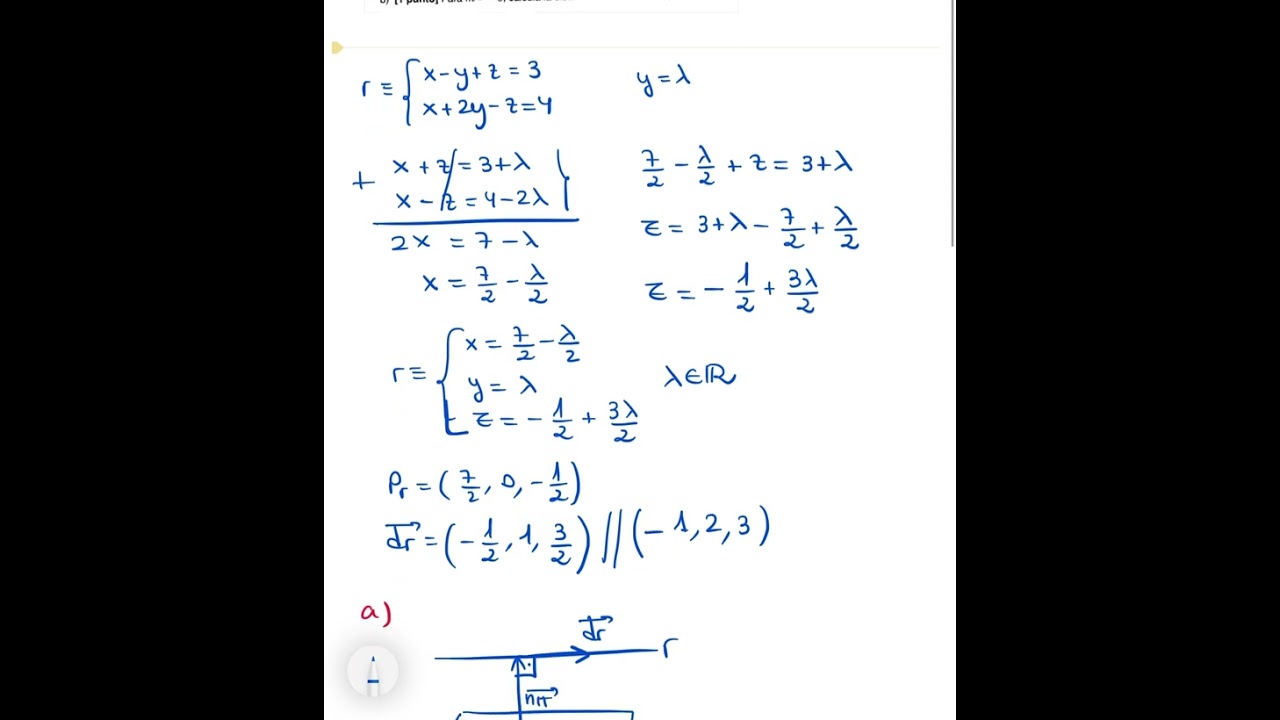 r ≡ { x - y + z = 3
x + 2y - z = 4
y = λ
+ x + z = 3 + λ
x - z = 4 - 2λ
2x = 7 - λ
x = 7/2 - λ/2
7/2 - λ/2 + z = 3 + λ
z = 3 + λ - 7/2 + λ/2
z = - 1/2 + 3λ/2
r ≡ { x = 7/2 - λ/2
y = λ
z = - 1/2 + 3λ/2
λ ∈ ℝ
Pr = (7/2, 0, - 1/2)
dr⃗ = (- 1/2, 1, 3/2) // (- 1, 2, 3)
a)
dr⃗
r
nπ⃗